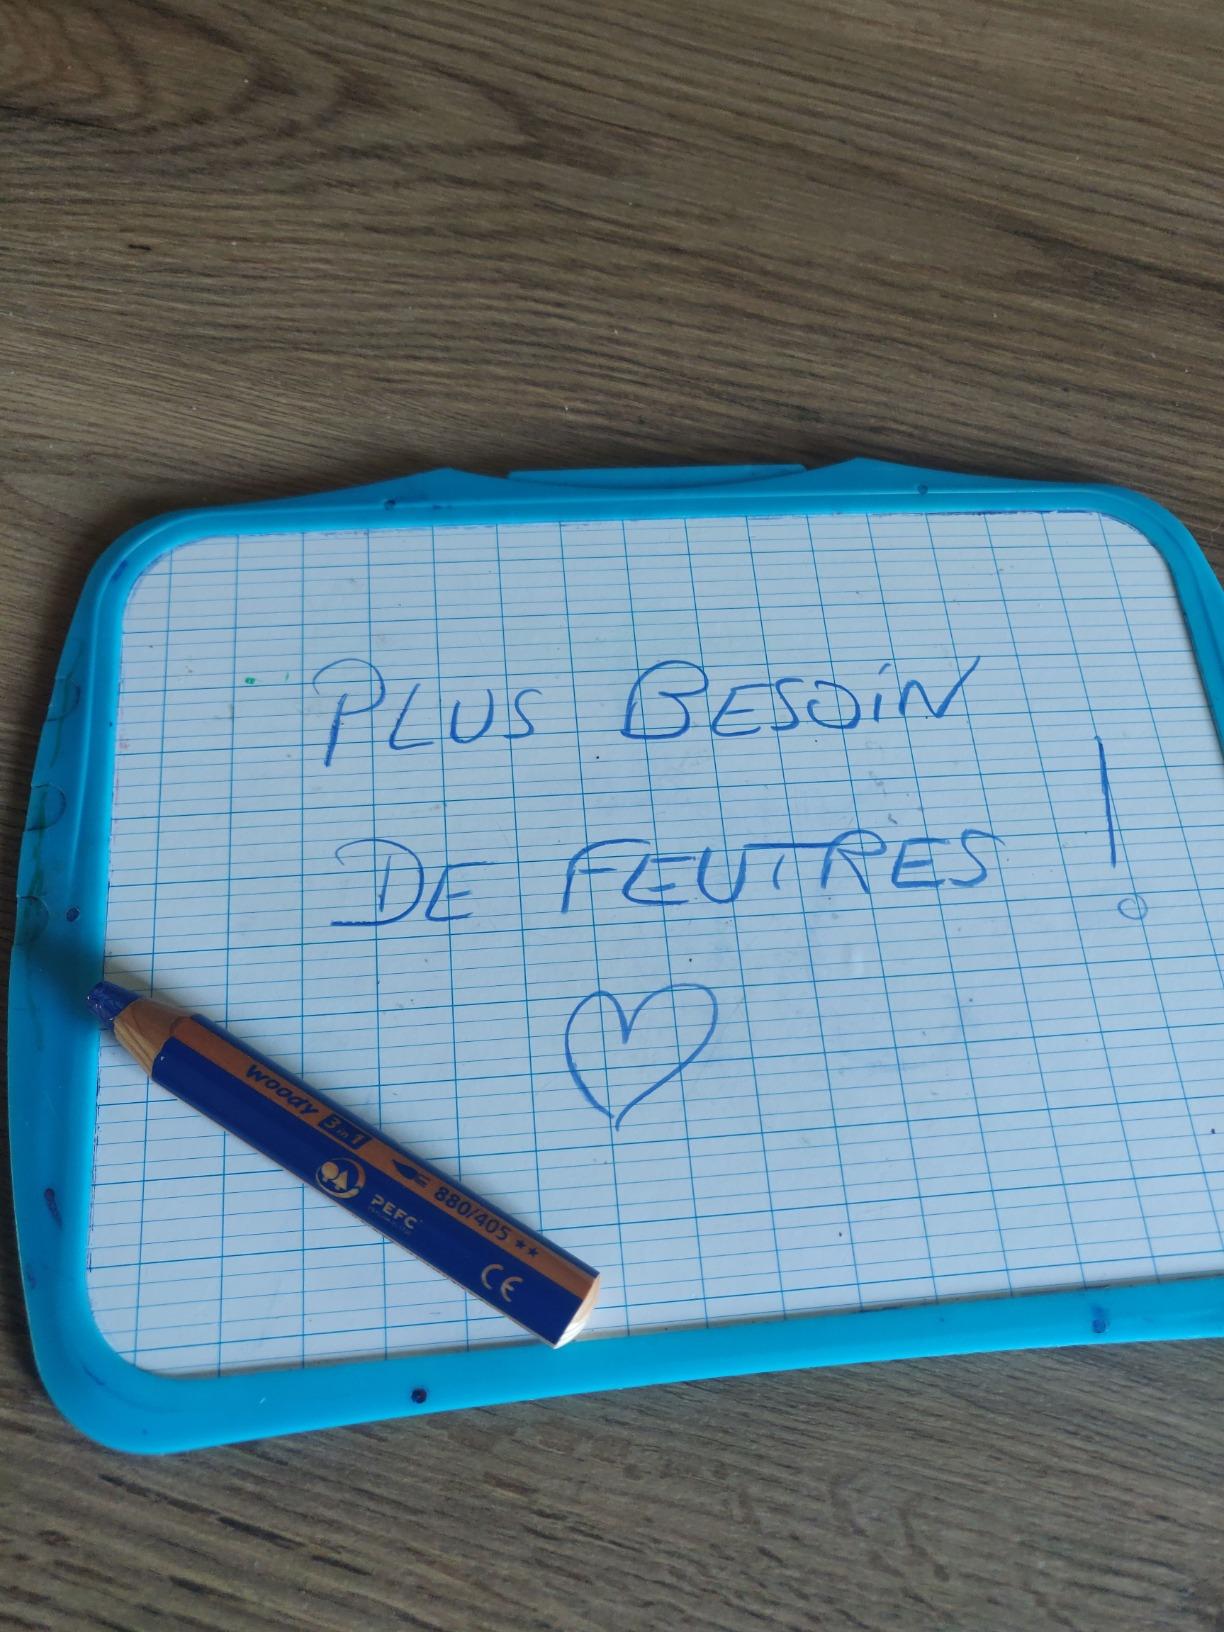 PLUS BESOIN
DE FEUTRES !
woody 3in1 880/405 **
PEFC
CE